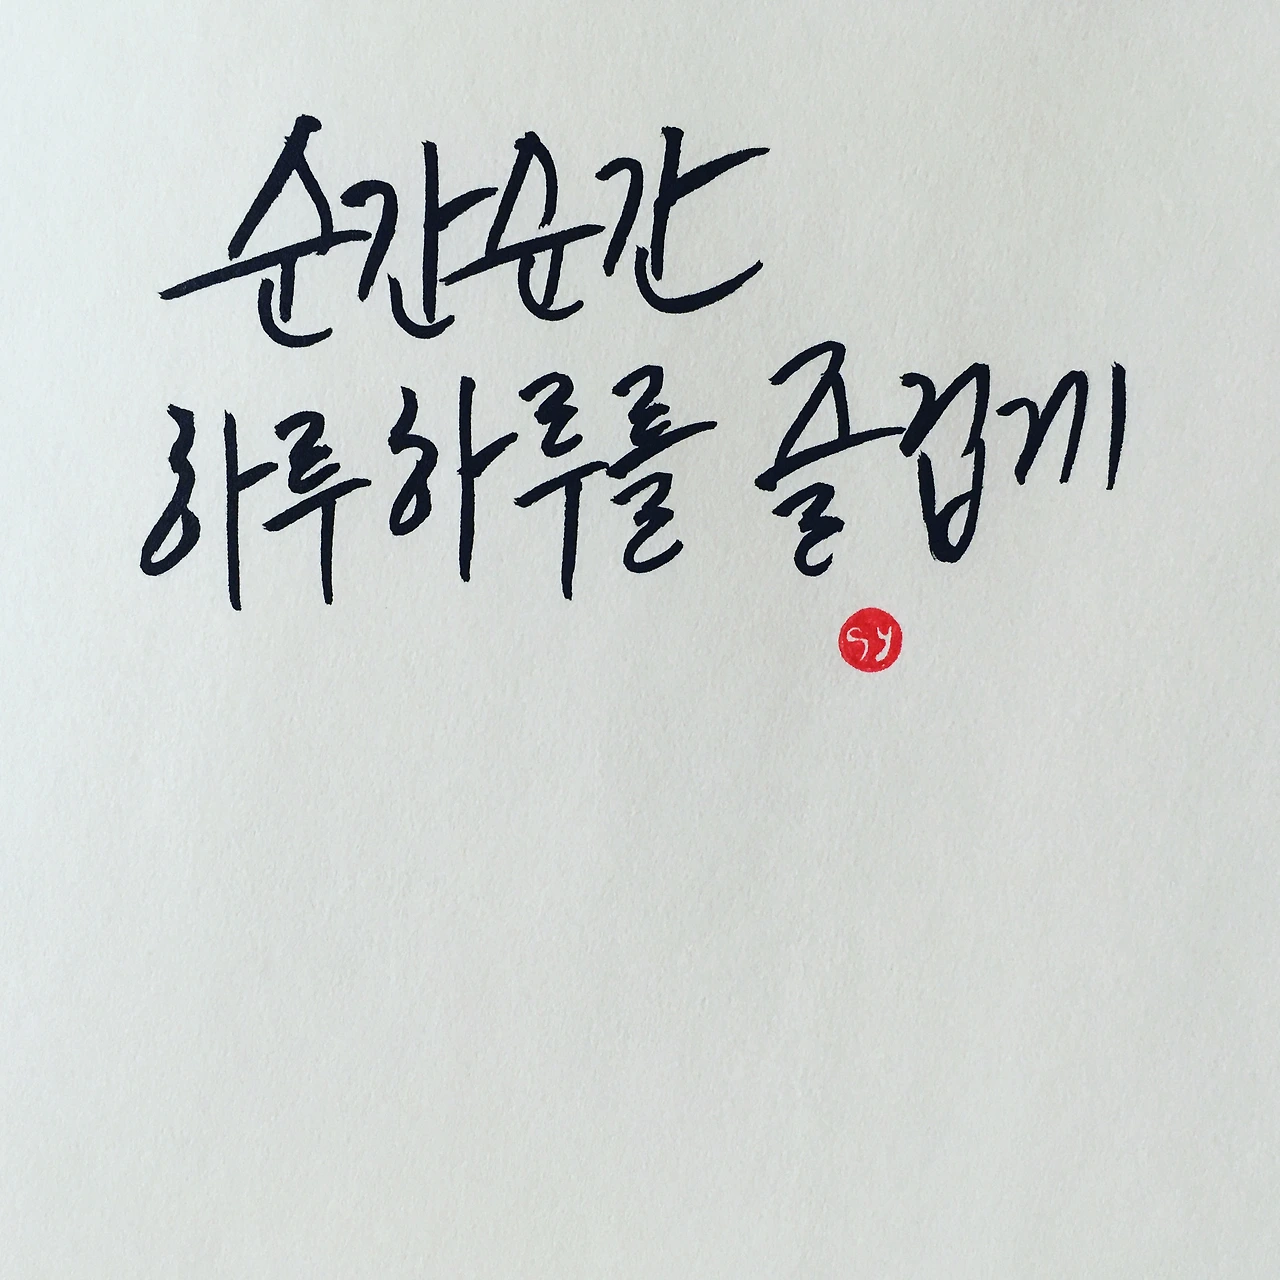 순간순간
하루하루를 즐겁게
sy